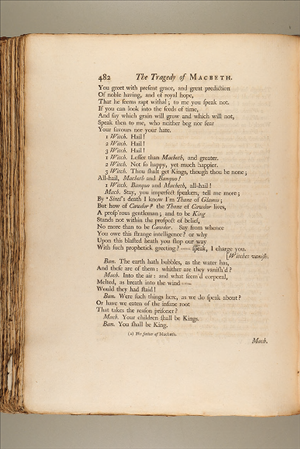 482 The Tragedy of MACBETH.
You greet with present grace, and great prediction
Of noble having, and of royal hope,
That he seems rapt withal; to me you speak not.
If you can look into the seeds of time,
And say which grain will grow and which will not,
Speak then to me, who neither beg nor fear
Your favours nor your hate.
1 Witch. Hail!
2 Witch. Hail!
3 Witch. Hail!
1 Witch. Lesser than Macbeth, and greater.
2 Witch. Not so happy, yet much happier.
3 Witch. Thou shalt get Kings, though thou be none;
All-hail, Macbeth and Banquo!
1 Witch. Banquo and Macbeth, all-hail!
Mach. Stay, you imperfect speakers, tell me more;
By Sinel's death I know I'm Thane of Glamis;
But how of Cawdor? the Thane of Cawdor lives,
A prosp'rous gentleman; and to be King
Stands not within the prospect of belief,
No more than to be Cawdor. Say from whence
You owe this strange intelligence? or why
Upon this blasted heath you stop our way
With such prophetick greeting? — speak, I charge you.
[Witches vanish.
Ban. The earth hath bubbles, as the water has,
And these are of them: whither are they vanish'd?
Macb. Into the air: and what seem'd corporal,
Melted, as breath into the wind —
Would they had staid!
Ban. Were such things here, as we do speak about?
Or have we eaten of the insane root
That takes the reason prisoner?
Macb. Your children shall be Kings.
Ban. You shall be King.
Macb.
(a) The father of Macbeth.